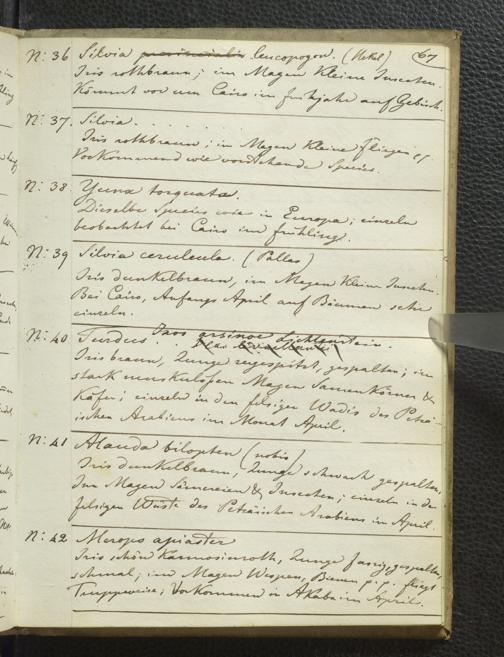 67
N: 36 Silvia provincialis leucopogon. (Mekel)
Iris rothbraun; im Magen kleine Insecten.
Kömmt vor um Cairo im frühjahr auf Gebüsch.
N: 37. Silvia . . . . . . .
Iris rothbraun; im Magen kleine fliegen
Vorkommend wie vorstehende Species.
N: 38. Yunx torquata.
Dieselbe Species wie in Europa; einzeln
beobachtet bei Cairo im frühling.
N: 39 Silvia cerulecula. (Pallas)
Iris dunkelbraun, im Magen kleine Insecten.
Bei Cairo, Anfangs April auf Bäumen sehr
einzeln.
N: 40 Turdus Saxa arsinoe Lichtenstein.
Iris braun, Zunge zugespitzt, gespalten; im
stark muskulösen Magen Samenkörner &
Käfer; einzeln in den felsigen Wadis des Peträ-
ischen Arabiens im Monat April.
N: 41 Alauda bilopten (nobis)
Iris dunkelbraun, Zunge schwach gespalten,
Im Magen Sämereien & Insecten; einzeln in der
felsigen Wüste des Peträischen Arabiens im April.
N: 42 Merops apiaster
Iris schön Karmosinroth, Zunge fasrig, gespalten,
schmal; im Magen Wespen, Bienen p.p. fliegt
Truppweise; Vorkommen in Akaba im April.